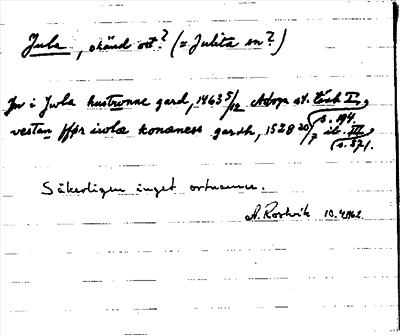 Jula, okänd ort? (= Julita sn?)
Jn i Jwla hustrwnne gard, 1463 5/12 Arboga st. tänk I,
s. 194.
vestan ffør iwla konones gardh, 1528 20/7 ib. III,
s. 37.
Säkerligen inget ortnamn.
A. Rostvik 10.4.1962.